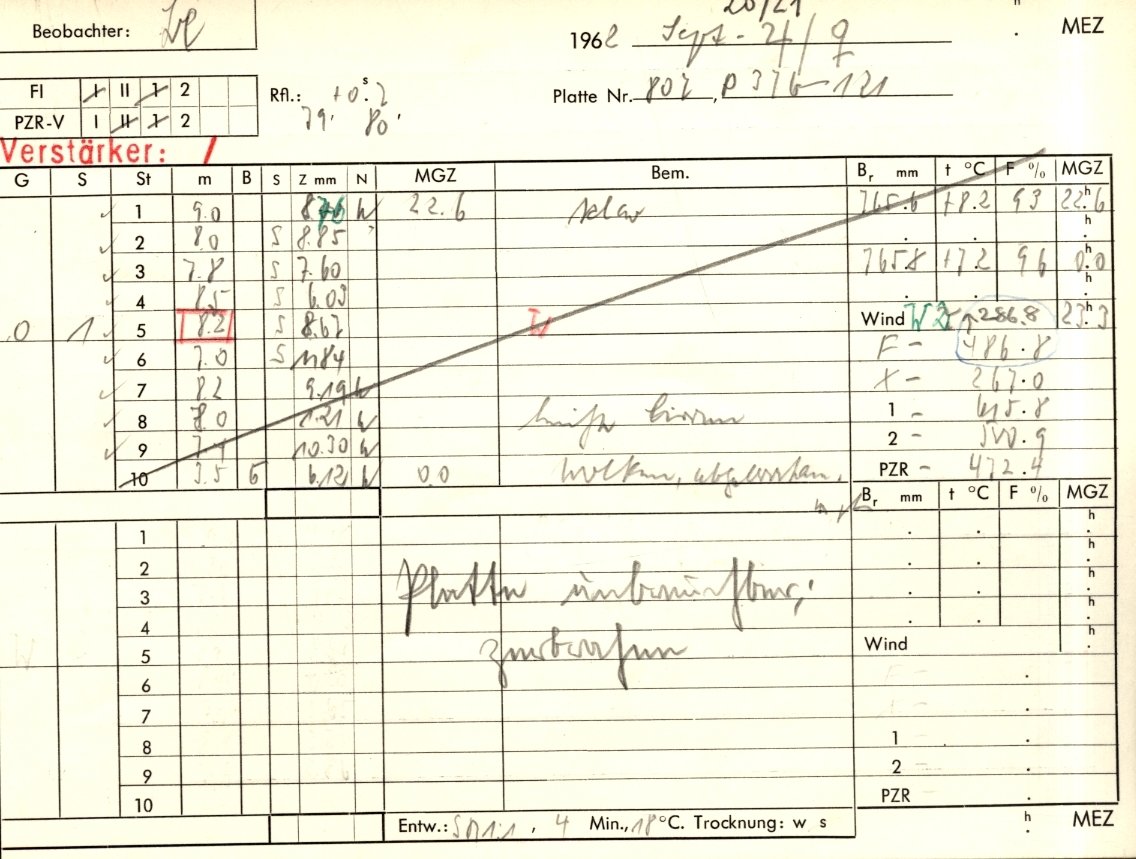 Beobachter:
20/21 h
1962 Sept - . MEZ
FI I II 1 2
Rfl.: +0.s2
Platte Nr. 802, P 376-121
PZR-V I II 1 2
79. 80.
Verstärker: /
G S St m B S Z mm N MGZ Bem. Br mm t °C F % MGZ
1 9.0 8.76 W 22.6 klar 765.6 +8.2 93 22.6 h
2 8.0 S 8.85 . . h
3 7.8 S 7.60 765.8 +7.2 96 0.0 h
4 8.5 S 6.03 . . h
0 1 5 8.2 S 8.67 Wind W 2 286.8 23.3 h
6 7.0 S 11.84 F - 486.8
7 8.2 9.19 W X - 267.0
8 8.0 1.21 W 1 -
9 7.4 10.30 W 2 -
10 3.5 6 6.12 W 0.0 Wolken, PZR - 472.4
Br mm t °C F % MGZ
1 . . h
2 . . h
Platte unbrauchbar;
3 . . h
4 . . h
zerbrochen
5 Wind . h
6 .
7 .
8 1 .
9 2 .
10 PZR .
Entw.: 1:1, 4 Min., 18 °C. Trocknung: w s h . MEZ